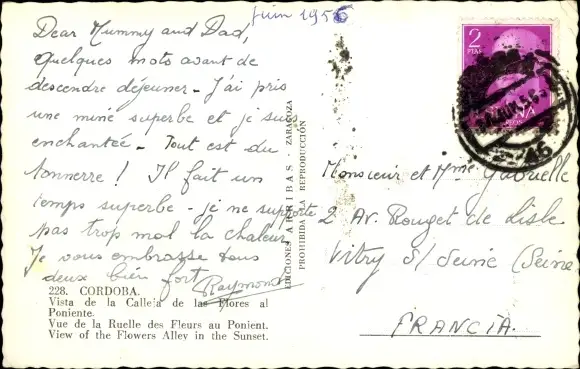 juin 1956
Dear Mummy and Dad,
Quelques mots avant de
descendre déjeuner - J'ai pris
une mine superbe et je suis
enchantée - Tout est du
tonnerre ! Il fait un
temps superbe - je ne supporte
pas trop mal la chaleur.
Je vous embrasse tous
deux bien fort
Raymonde
228. CORDOBA.
Vista de la Calleja de las Flores al
Poniente.
Vue de la Ruelle des Fleurs au Ponient.
View of the Flowers Alley in the Sunset.
EDICIONES ARRIBAS - ZARAGOZA
PROHIBIDA LA REPRODUCCIÓN
2
PTAS
Monsieur et Mme Gabrielle
2 Av. Rouget de Lisle
Vitry s/ Seine (Seine)
FRANCIA.